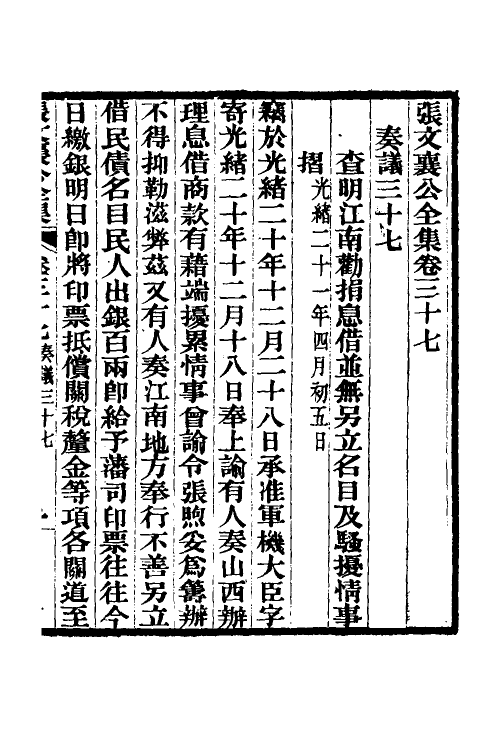 張文襄公全集卷三十七
奏議三十七
查明江南勸捐息借並無另立名目及騷擾情事
摺光緒二十一年四月初五日
竊於光緒二十年十二月二十八日承准軍機大臣字
寄光緒二十年十二月十八日奉上諭有人奏山西辦
理息借商款有藉端擾累情事曾諭令張煦妥爲籌辦
不得抑勒滋弊茲又有人奏江南地方奉行不善另立
借民債名目民人出銀百兩卽給予藩司印票往往今
日繳銀明日卽將印票抵償關稅釐金等項各關道至
張文襄公全集 卷三十七奏議三十七 一